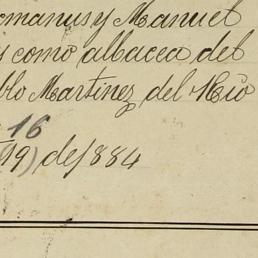 omanus y Manuel
s como albacea del
blo Martinez del Rio
16
19) de 1884